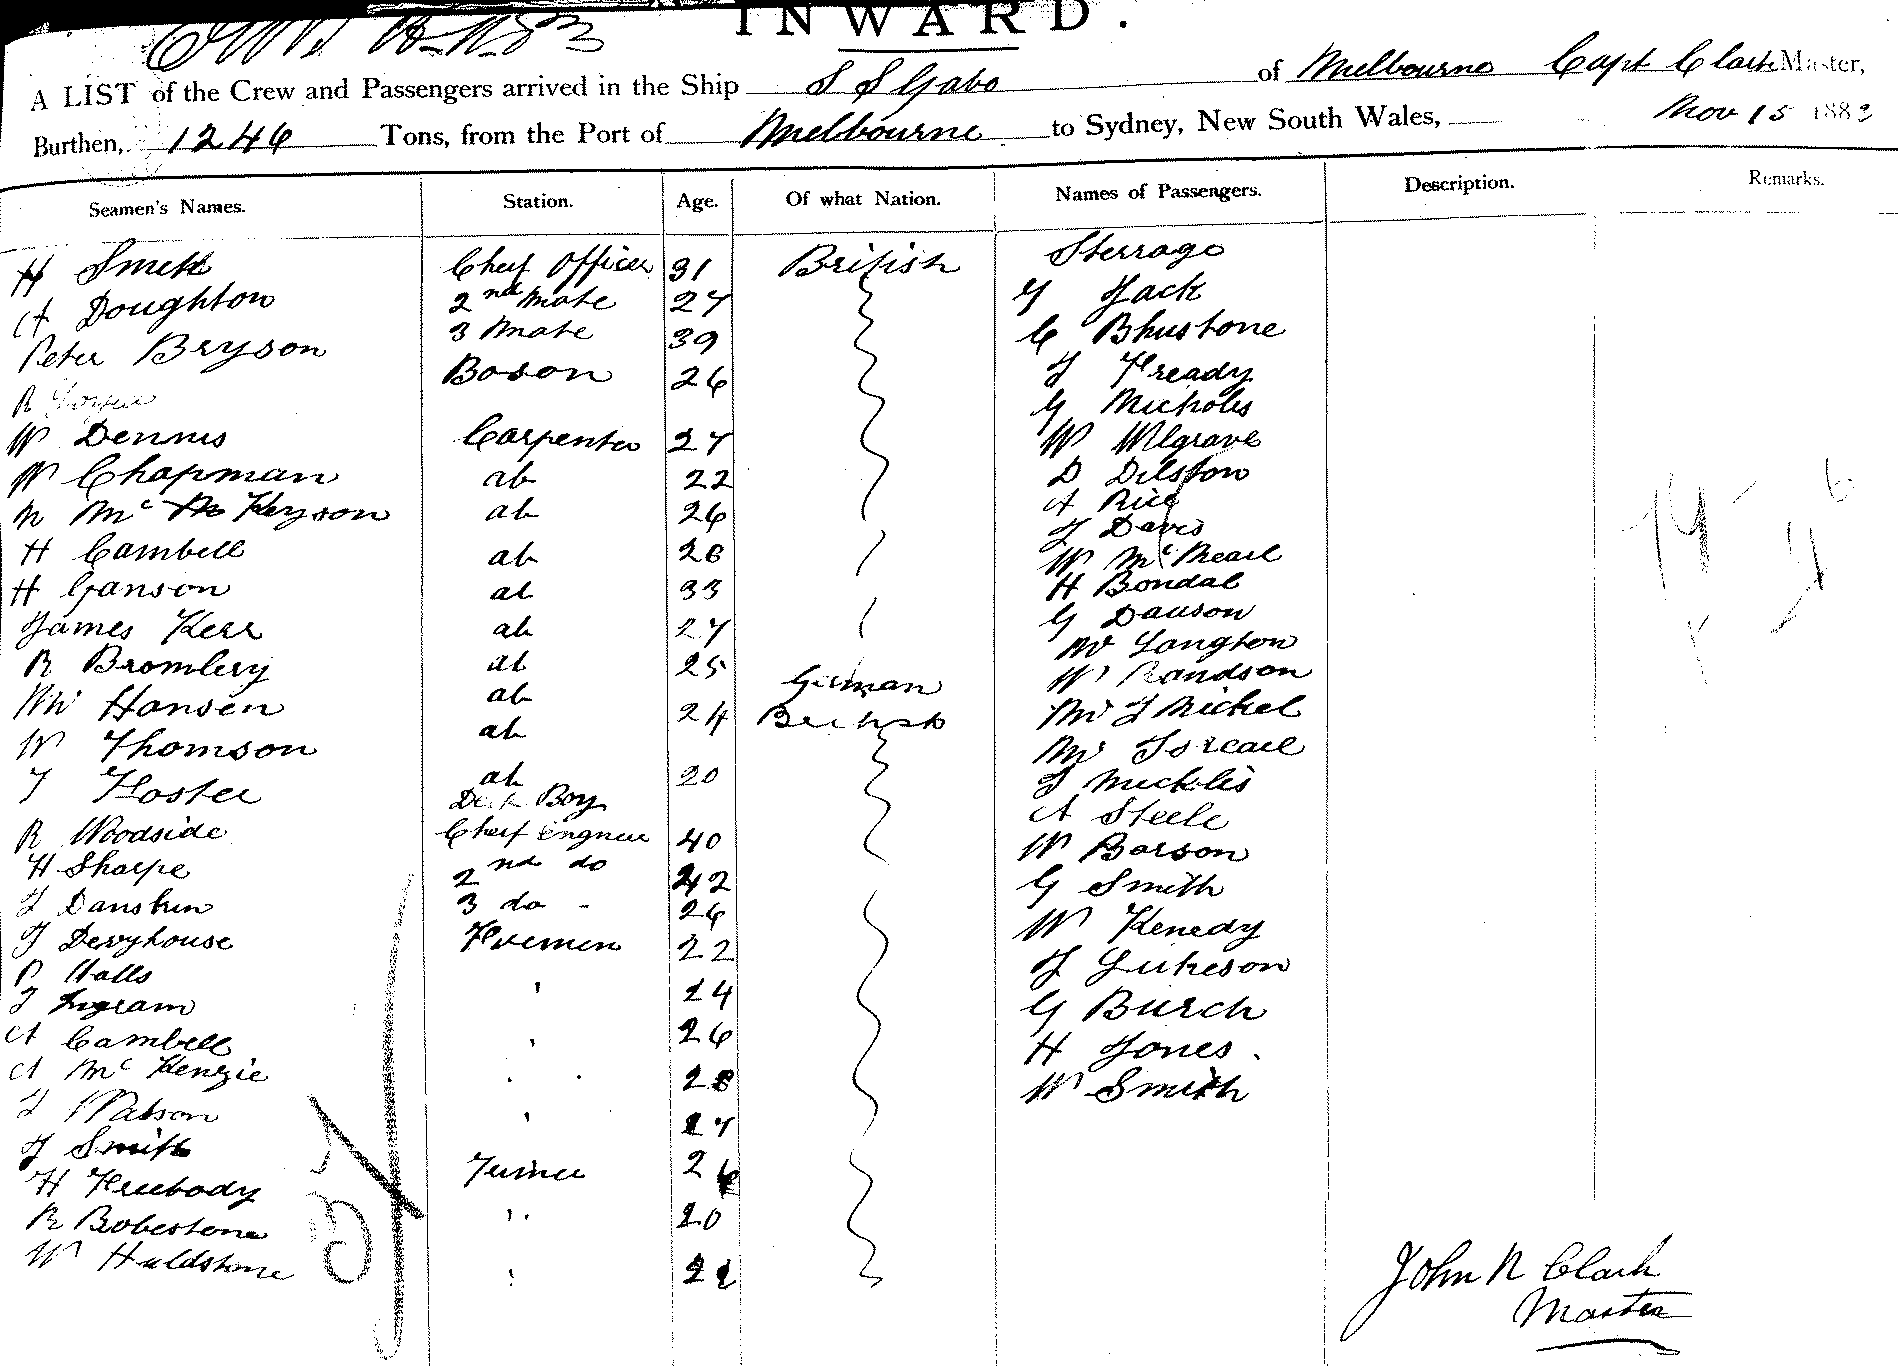 INWARD.
A LIST of the Crew and Passengers arrived in the Ship S S Gabo of Melbourne Capt Clark Master,
Burthen, 1246 Tons, from the Port of Melbourne to Sydney, New South Wales, Nov 15 1883
Seamen's Names. Station. Age. Of what Nation. Names of Passengers. Description. Remarks.
H Smith Cheif Officer 31 British Sterrage
A Doughton 2nd Mate 27 G Jack
Peter Bryson 3 Mate 39 C Bhustone
R Boson 26 J Fready
G Nicholis
W Dennis Carpenter 27 W Wlgrave
W Chapman ab 22 D Dilston
N Mc Keyson ab 26 A Rice
J Davis
H Cambell ab 28 W Mc
H Ganson ab 33 H Bondal
James Kerr ab 27 G Dauson
R Bromlery ab 25 W Langton
Hansen ab German W Randson
W Thomson ab 24 British Mr J Nickel
J Foster ab 20 Mr
Deck Boy J Micklis
R Woodside Cheif engneer 40 A Steele
H Sharpe 2nd do 42 W Barson
J Danskin 3 do 26 G Smith
J Derryhouse Firemen 22 W Kenedy
P Halls J Lukeson
J Ingram ' 24 G Burch
A Cambell ' 26 H Jones.
A Mc Kenzie 28 W Smith
J Watson ' 27
J Smith
H Freebody 26
R Bobestone 20
W Huldstone 22
John R Clark
Master